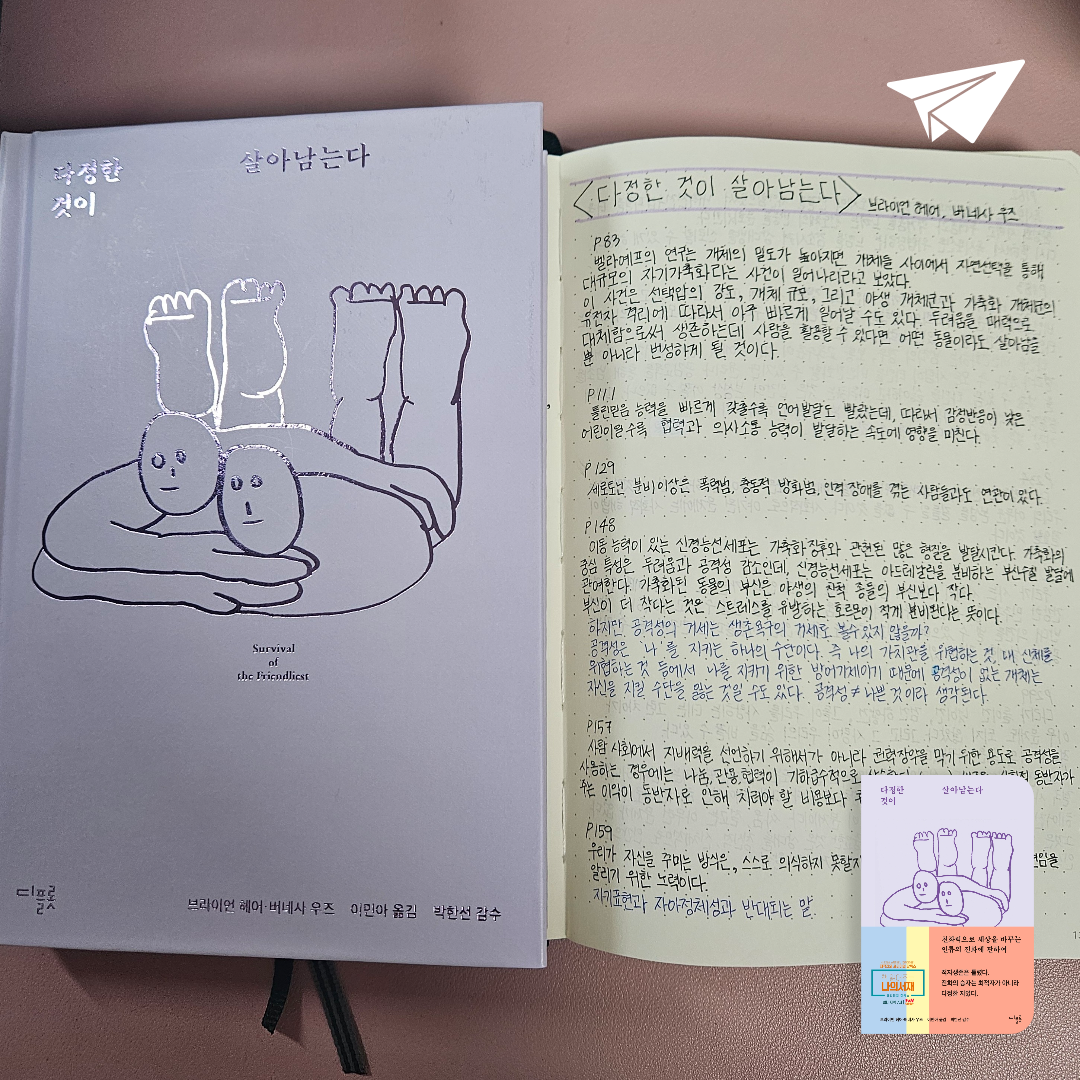 다정한
것이
살아남는다
Survival
of
the Friendliest
디플롯
브라이언 헤어·버네사 우즈 이민아 옮김 박한선 감수
<다정한 것이 살아남는다> 브라이언 헤어, 버네사 우즈
P83
벨랴예프의 연구는 개체의 밀도가 높아지면 개체들 사이에서 자연선택을 통해
대규모의 자기가축화라는 사건이 일어나리라고 보았다.
이 사건은 선택압의 강도, 개체 규모, 그리고 야생 개체군과 가축화 개체군의
유전자 격리에 따라서 아주 빠르게 일어날 수도 있다. 두려움을 매력으로
대체함으로써 생존하는데 사람을 활용할 수 있다면 어떤 동물이라도 살아남을
뿐 아니라 번성하게 될 것이다.
P111
틀린믿음 능력을 빠르게 갖출수록 언어발달도 빨랐는데, 따라서 감정반응이 낮은
어린이일수록 협력과 의사소통 능력이 발달하는 속도에 영향을 미친다.
P129
세로토닌 분비이상은 폭력범, 충동적 방화범, 인격 장애를 겪는 사람들과도 연관이 있다.
P148
이동 능력이 있는 신경능선세포는 가축화징후와 관련된 많은 형질을 발달시킨다. 가축화의
중심 특성은 두려움과 공격성 감소인데, 신경능선세포는 아드레날린을 분비하는 부신수질 발달에
관여한다. 가축화된 동물의 부신은 야생의 친척 종들의 부신보다 작다.
부신이 더 작다는 것은 스트레스를 유발하는 호르몬이 적게 분비된다는 뜻이다.
하지만 공격성의 거세는 생존욕구의 거세로 볼수 있지 않을까?
공격성은 '나'를 지키는 하나의 수단이다. 즉 나의 가치관을 위협하는 것, 내 신체를
위협하는 것 등에서 나를 지키기 위한 방어기제이기 때문에 공격성이 없는 개체는
자신을 지킬 수단을 잃는 것일 수도 있다. 공격성 ≠ 나쁜 것이라 생각된다.
P157
사람 사회에서 지배력을 선언하기 위해서가 아니라 권력장악을 막기 위한 용도로 공격성을
사용하는 경우에는 나눔, 관용, 협력이 기하급수적으로 동반자가
주는 이익이 동반자로 인해 치러야 할 비용보다
P159
우리가 자신을 꾸미는 방식은, 스스로 의식하지 못할지
알리기 위한 노력이다.
자기표현과 자아정체성과 반대되는 말.
다정한
것이
살아남는다
친화력으로 세상을 바꾸는
인류의 진화에 관하여
적자생존은 틀렸다.
진화의 승자는 최적자가 아니라
다정한 자였다.
나의서재
디플롯